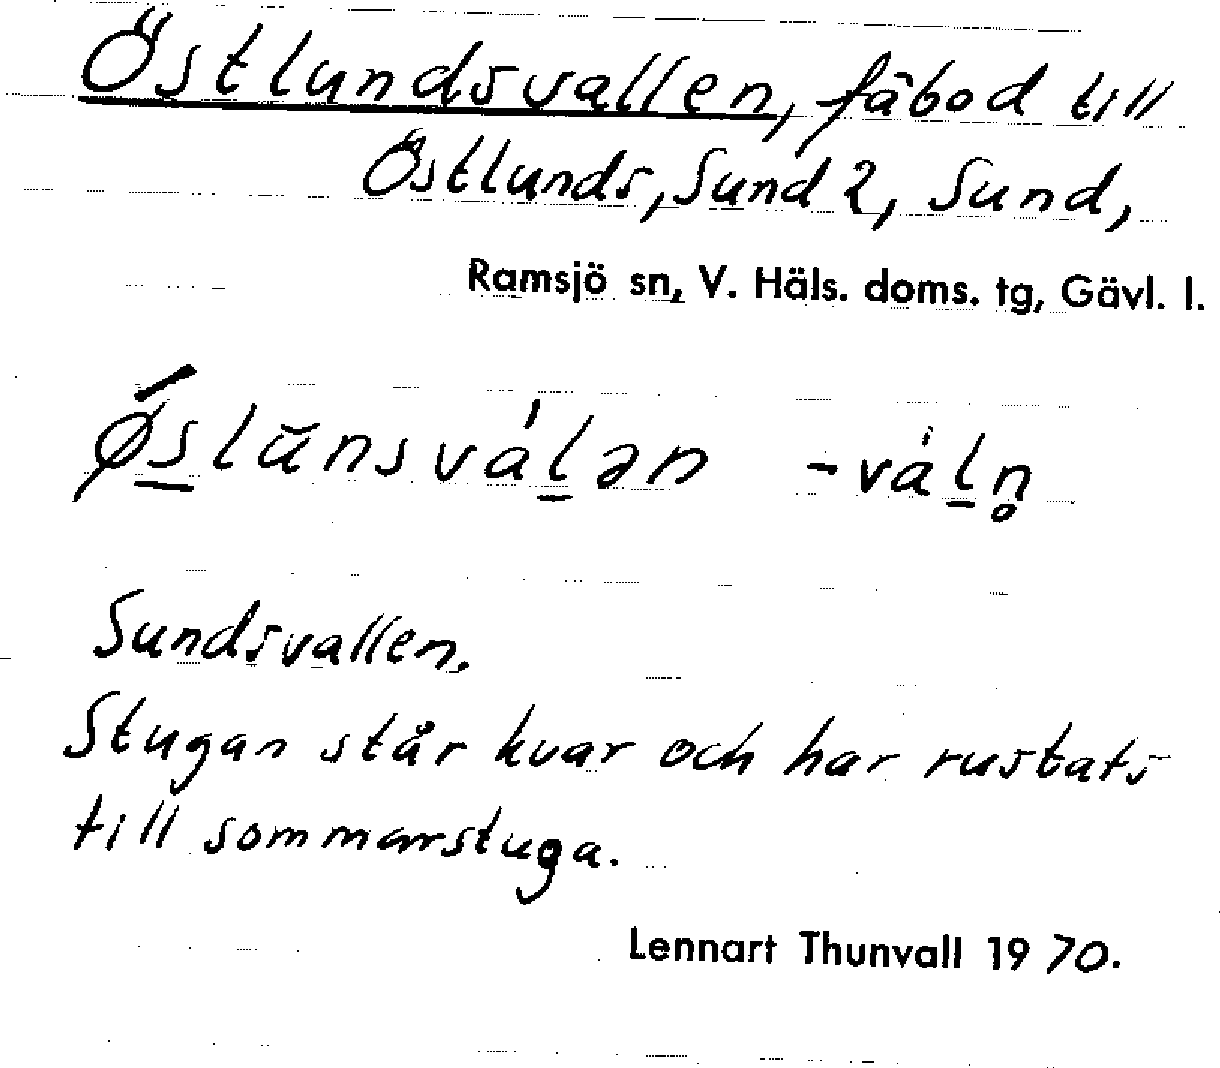 Östlundsvallen, fäbod till
Östlunds, Sund 2, Sund,
Ramsjö sn, V. Häls. doms. tg, Gävl. l.
ǿs̱lŭnsvȧḻən -vȧḻn̥
Sundsvallen.
Stugan står kvar och har rustats
till sommarstuga.
Lennart Thunvall 1970.